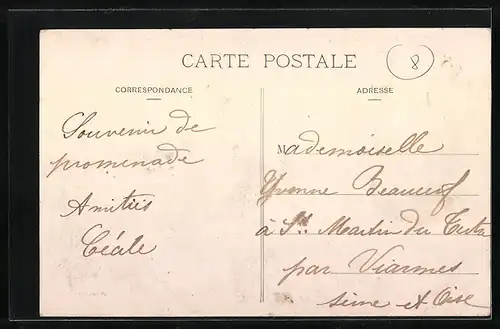 CARTE POSTALE
8
CORRESPONDANCE
ADRESSE
Souvenir de
promenade
Amitiés
Mademoiselle
Yvonne
à St Martin du Tertre
par Viarmes
Seine et Oise